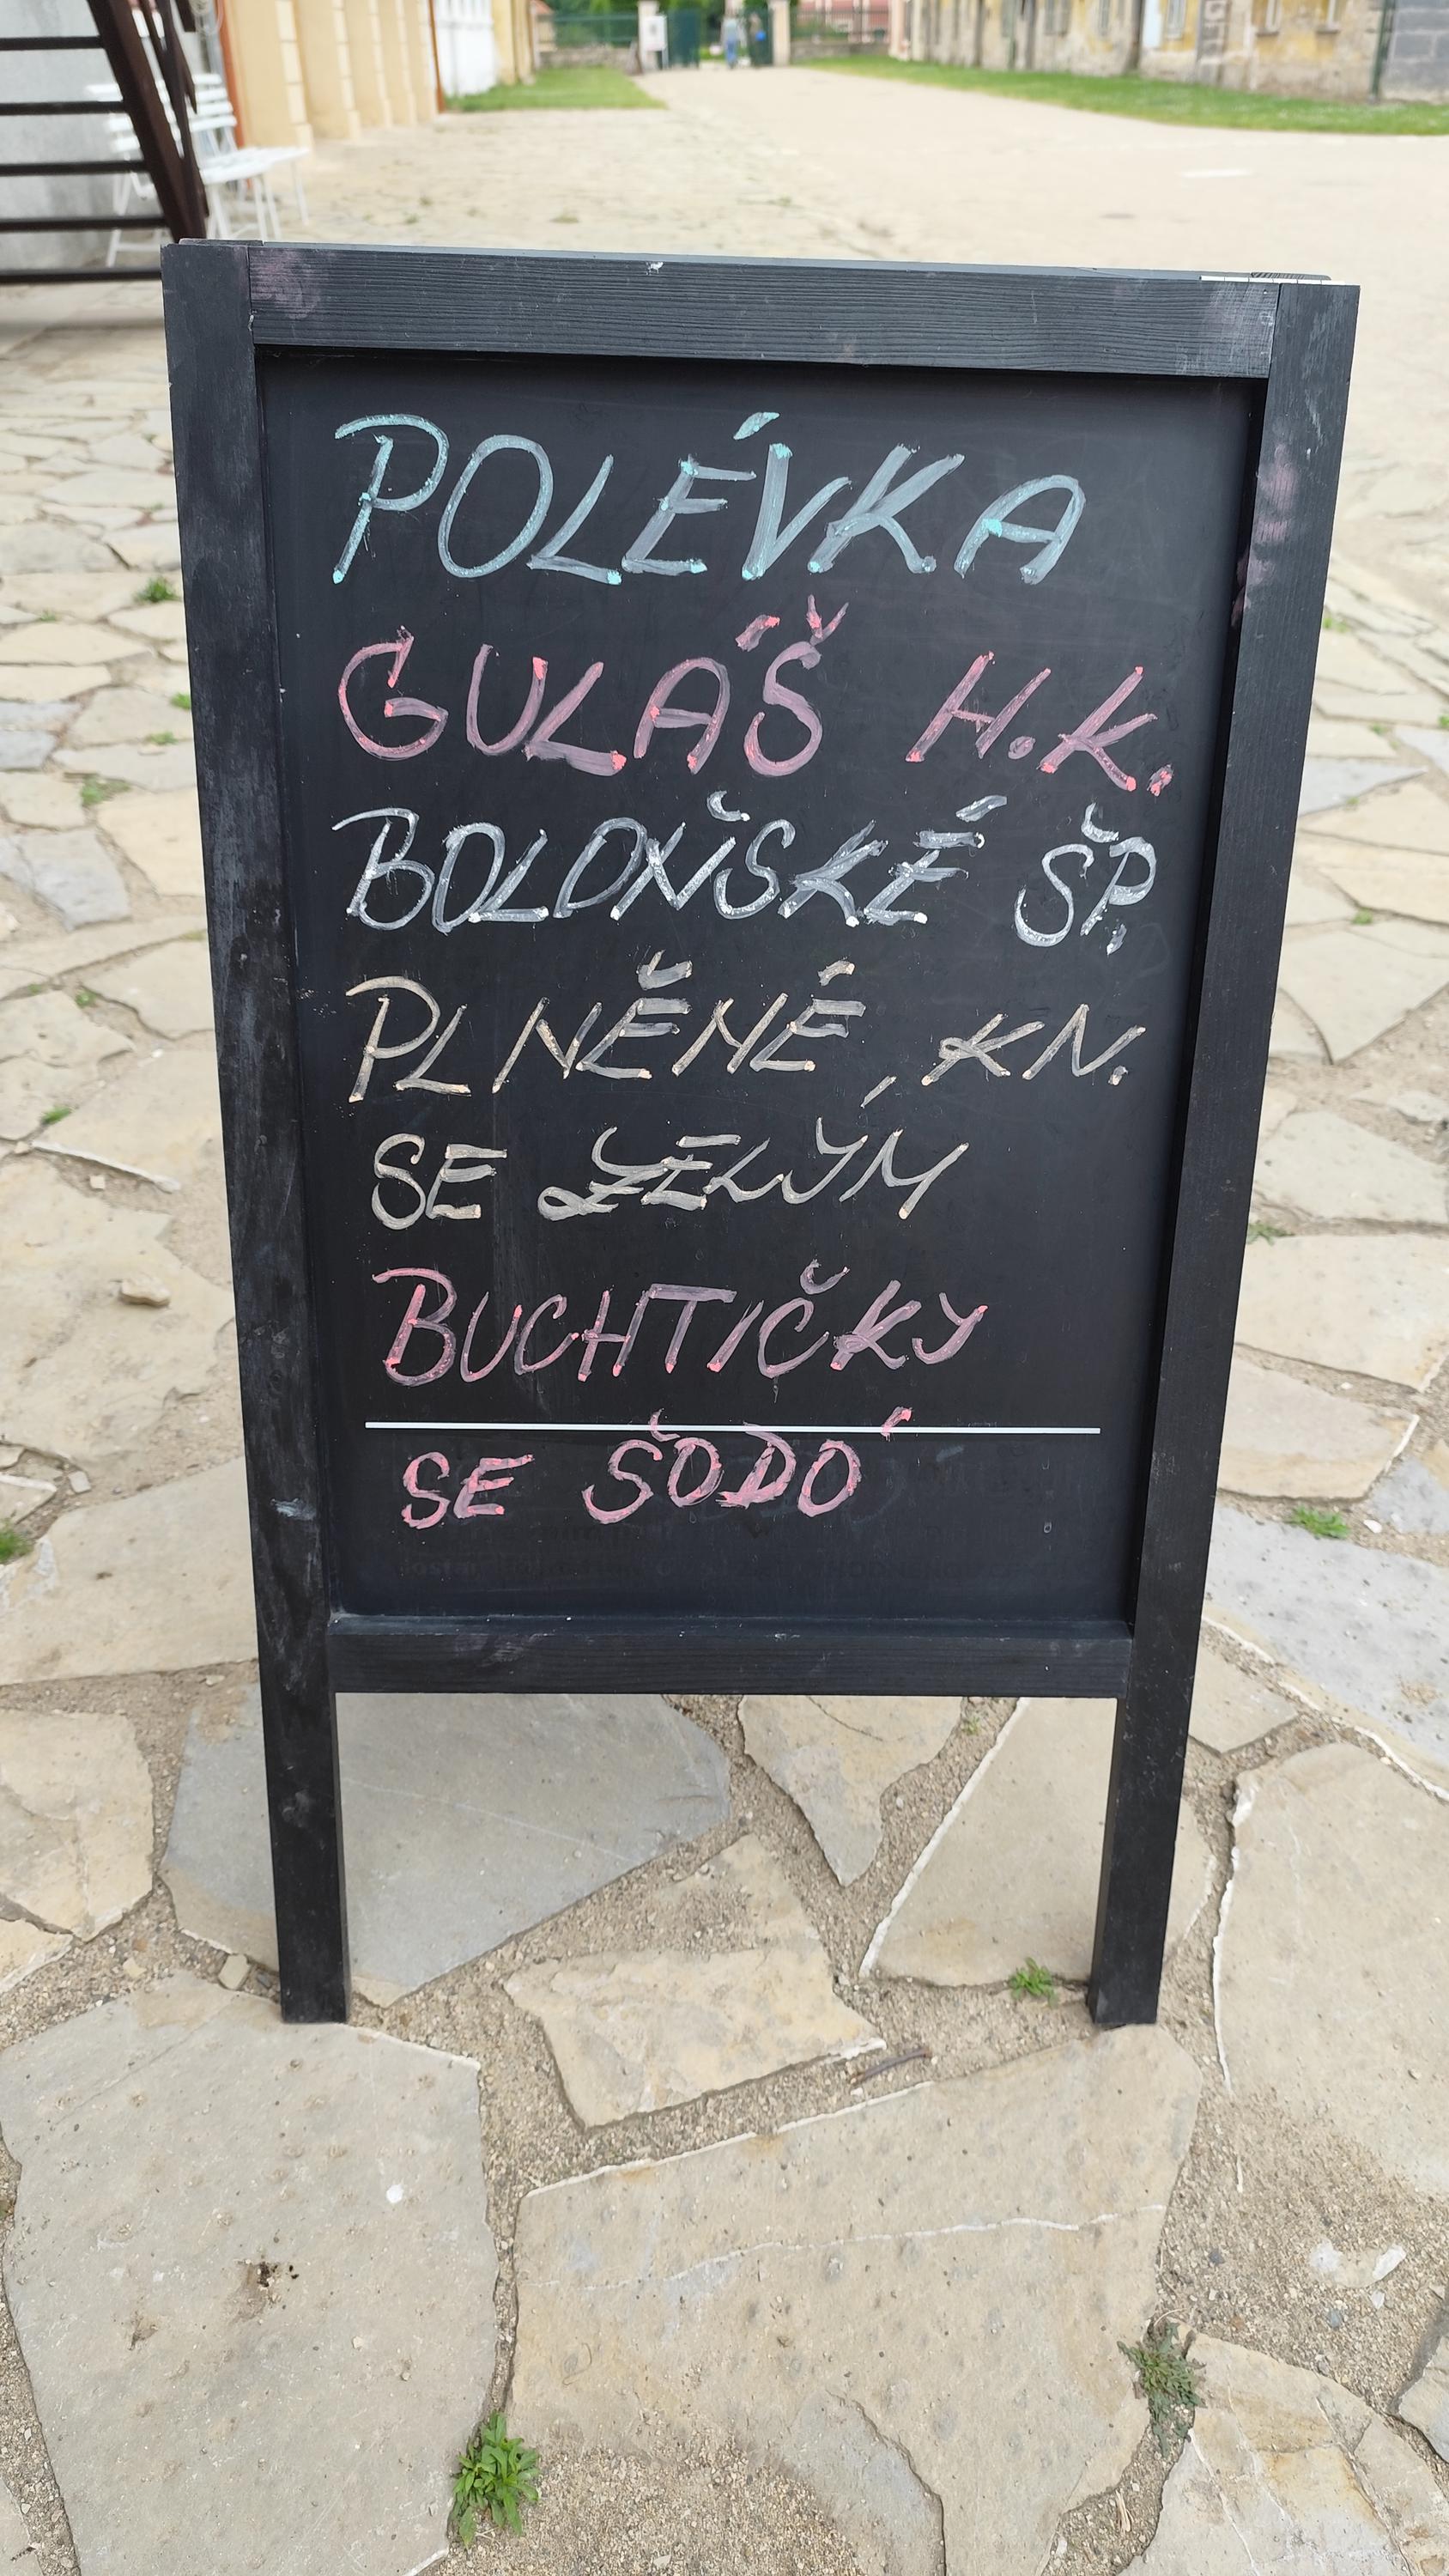 POLÉVKA
GULÁŠ H.K.
BOLOŇSKÉ ŠP.
PLNĚNÉ KN.
SE ZELÝM
BUCHTIČKY
SE ŠODÓ